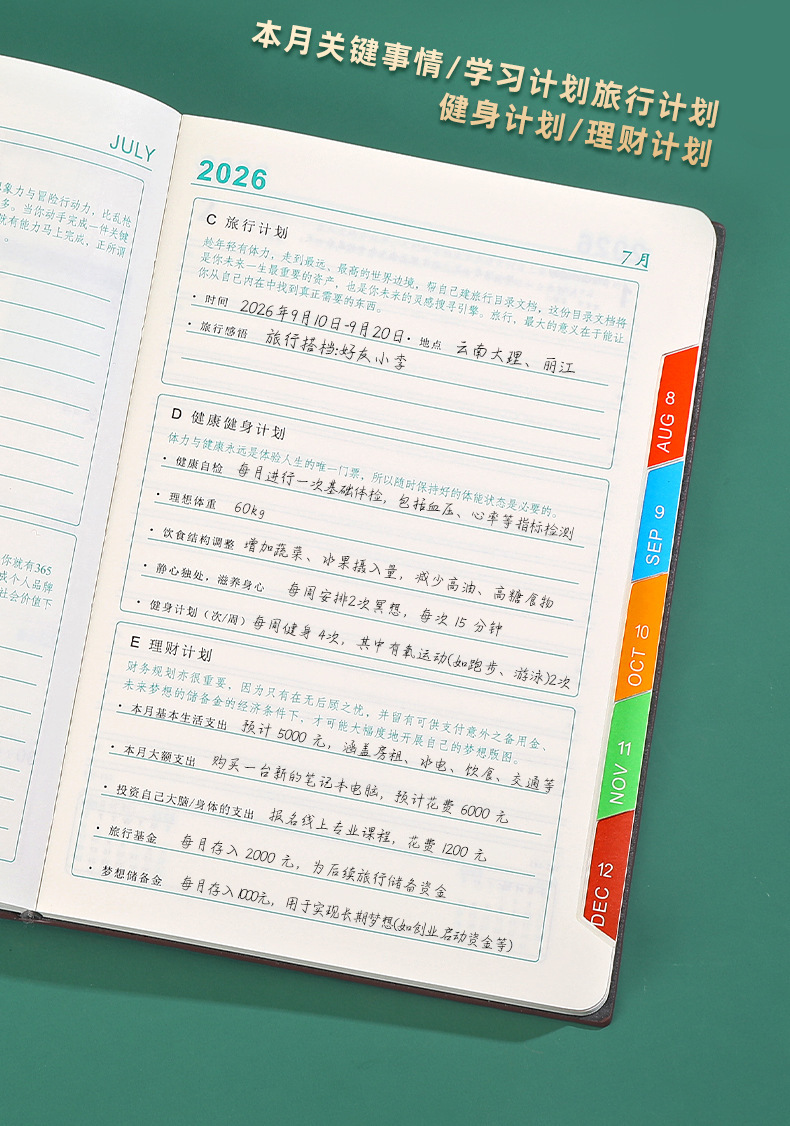 本月关键事情/学习计划旅行计划
健身计划/理财计划
JULY
象力与冒险行动力，比乱枪
多。当你动手完成一件关键
就有能力马上完成、正所谓
。
你就有365
成个人品牌
社会价值下
2026
7月
C 旅行计划
趁年轻有体力，走到最远、最高的世界边境，帮自己建旅行目录文档，这份目录文档将
是你未来一生最重要的资产，也是你未来的灵感搜寻引擎。旅行，最大的意义在于能让
你从自己内在中找到真正需要的东西。
· 时间 2026年9月10日-9月20日 · 地点 云南大理、丽江
· 旅行感悟 旅行搭档:好友小李
D 健康健身计划
体力与健康永远是体验人生的唯一门票，所以随时保持好的体能状态是必要的。
· 健康自检 每月进行一次基础体检，包括血压、心率等指标检测
· 理想体重 60kg
· 饮食结构调整 增加蔬菜、水果摄入量，减少高油、高糖食物
· 静心独处，滋养身心 每周安排2次冥想，每次15分钟
· 健身计划（次/周） 每周健身4次，其中有氧运动(如跑步、游泳)2次
E 理财计划
财务规划亦很重要，因为只有在无后顾之忧，并留有可供支付意外之备用金、
未来梦想的储备金的经济条件下，才可能大幅度地开展自己的梦想版图。
· 本月基本生活支出 预计5000元，涵盖房租、水电、饮食、交通等
· 本月大额支出 购买一台新的笔记本电脑，预计花费6000元
· 投资自己大脑/身体的支出 报名线上专业课程，花费1200元
· 旅行基金 每月存入2000元，为后续旅行储备资金
· 梦想储备金 每月存入1000元，用于实现长期梦想(如创业启动资金等)
AUG 8
SEP 9
OCT 10
NOV 11
DEC 12